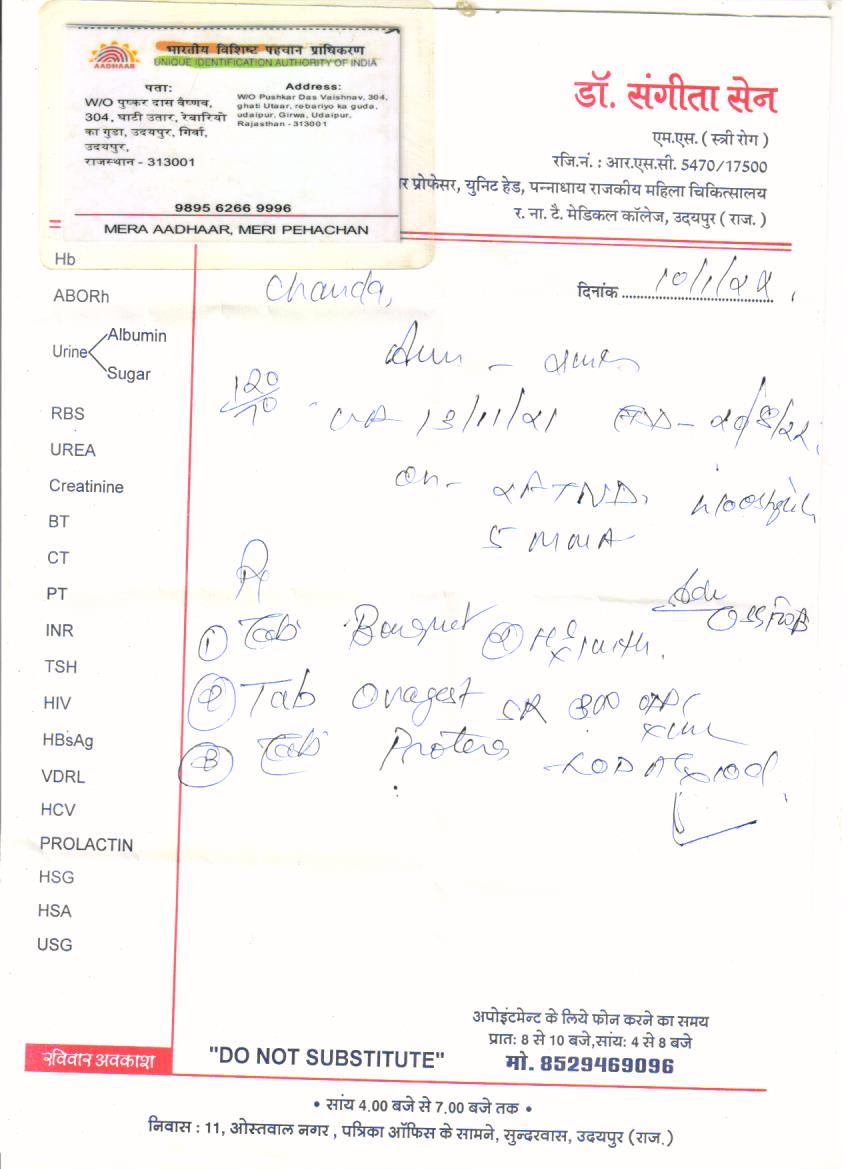 भारतीय विशिष्ट पहचान प्राधिकरण
UNIQUE IDENTIFICATION AUTHORITY OF INDIA
AADHAAR
पता:
W/O पुष्कर दास वैष्णव,
304, घाटी उतार, रेबारियो
का गुडा, उदयपुर, गिर्वा,
उदयपुर,
राजस्थान - 313001
Address:
W/O Pushkar Das Vaishnav, 304,
ghati Utaar, rebariyo ka guda,
udaipur, Girwa, Udaipur,
Rajasthan - 313001
9895 6266 9996
MERA AADHAAR, MERI PEHACHAN
डॉ. संगीता सेन
एम.एस. ( स्त्री रोग )
रजि.नं. : आर.एस.सी. 5470/17500
र प्रोफेसर, यूनिट हेड, पन्नाधाय राजकीय महिला चिकित्सालय
र. ना. टै. मेडिकल कॉलेज, उदयपुर ( राज. )
Hb
ABORh
Urine Albumin
Sugar
RBS
UREA
Creatinine
BT
CT
PT
INR
TSH
HIV
HBsAg
VDRL
HCV
PROLACTIN
HSG
HSA
USG
Chanda,
दिनांक 10/1/22
120/70
13/11/21
① Tab Bouquet
② Tab Ovagest SR 300
③ Tab Protera
रविवार अवकाश
"DO NOT SUBSTITUTE"
अपोइंटमेन्ट के लिये फोन करने का समय
प्रात: 8 से 10 बजे,सांय: 4 से 8 बजे
मो. 8529469096
• सांय 4.00 बजे से 7.00 बजे तक •
निवास : 11, ओस्तवाल नगर , पत्रिका ऑफिस के सामने, सुन्दरवास, उदयपुर (राज.)